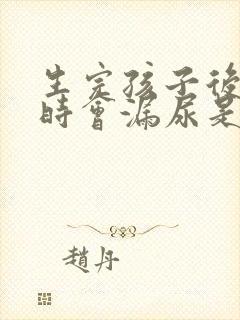 生完孩子後
時會漏尿是
趙丹